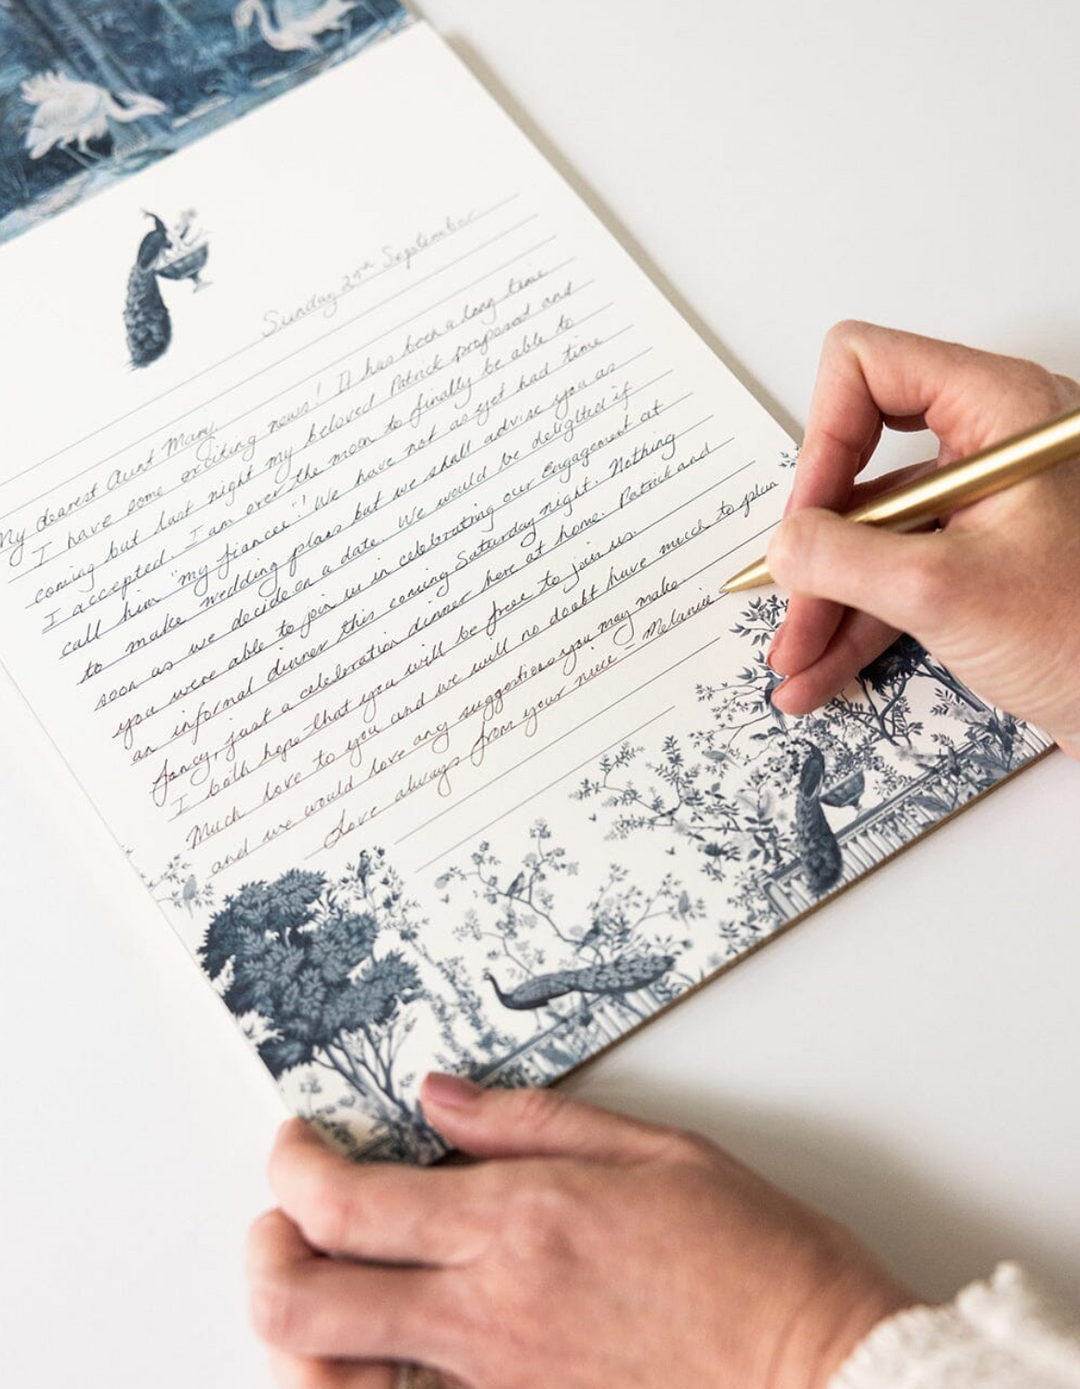 Sunday 29th September
My dearest Aunt Mary,
I have some exciting news! It has been a long time
coming but last night my beloved Patrick proposed and
I accepted. I am over the moon to finally be able to
call him "my fiance"! We have not as yet had time
to make wedding plans but we shall advise you as
soon as we decide on a date. We would be delighted if
you were able to join us in celebrating our Engagement at
an informal dinner this coming Saturday night. Nothing
fancy, just a celebration dinner here at home. Patrick and
I both hope that you will be free to join us.
Much love to you and we will no doubt have much to plan
and we would love any suggestions you may make.
Love always from your niece - Melanie